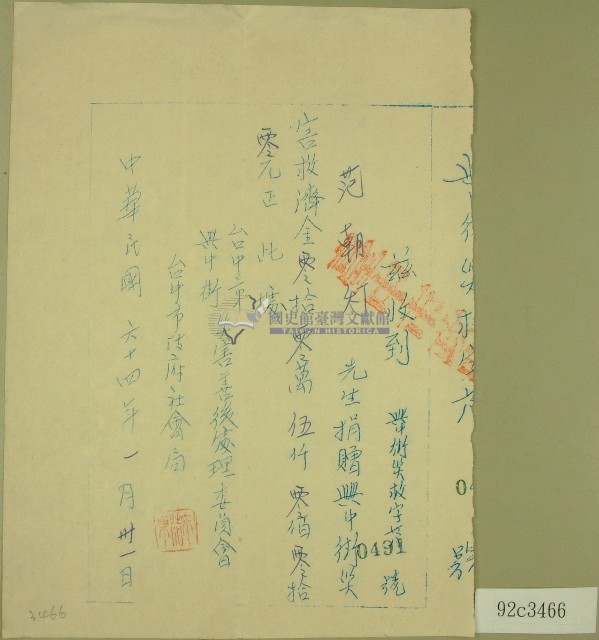 茲收到
興街災救字第0431號
范朝灯 先生捐贈興中街災
害救濟金零拾零萬伍仟零佰零拾
零元正 此據
台中市
興中街 災害善後處理委員會
台中市政府社會局
中華民國六十四年一月卅一日
國史館臺灣文獻館
TAIWAN HISTORICA
3466
92c3466